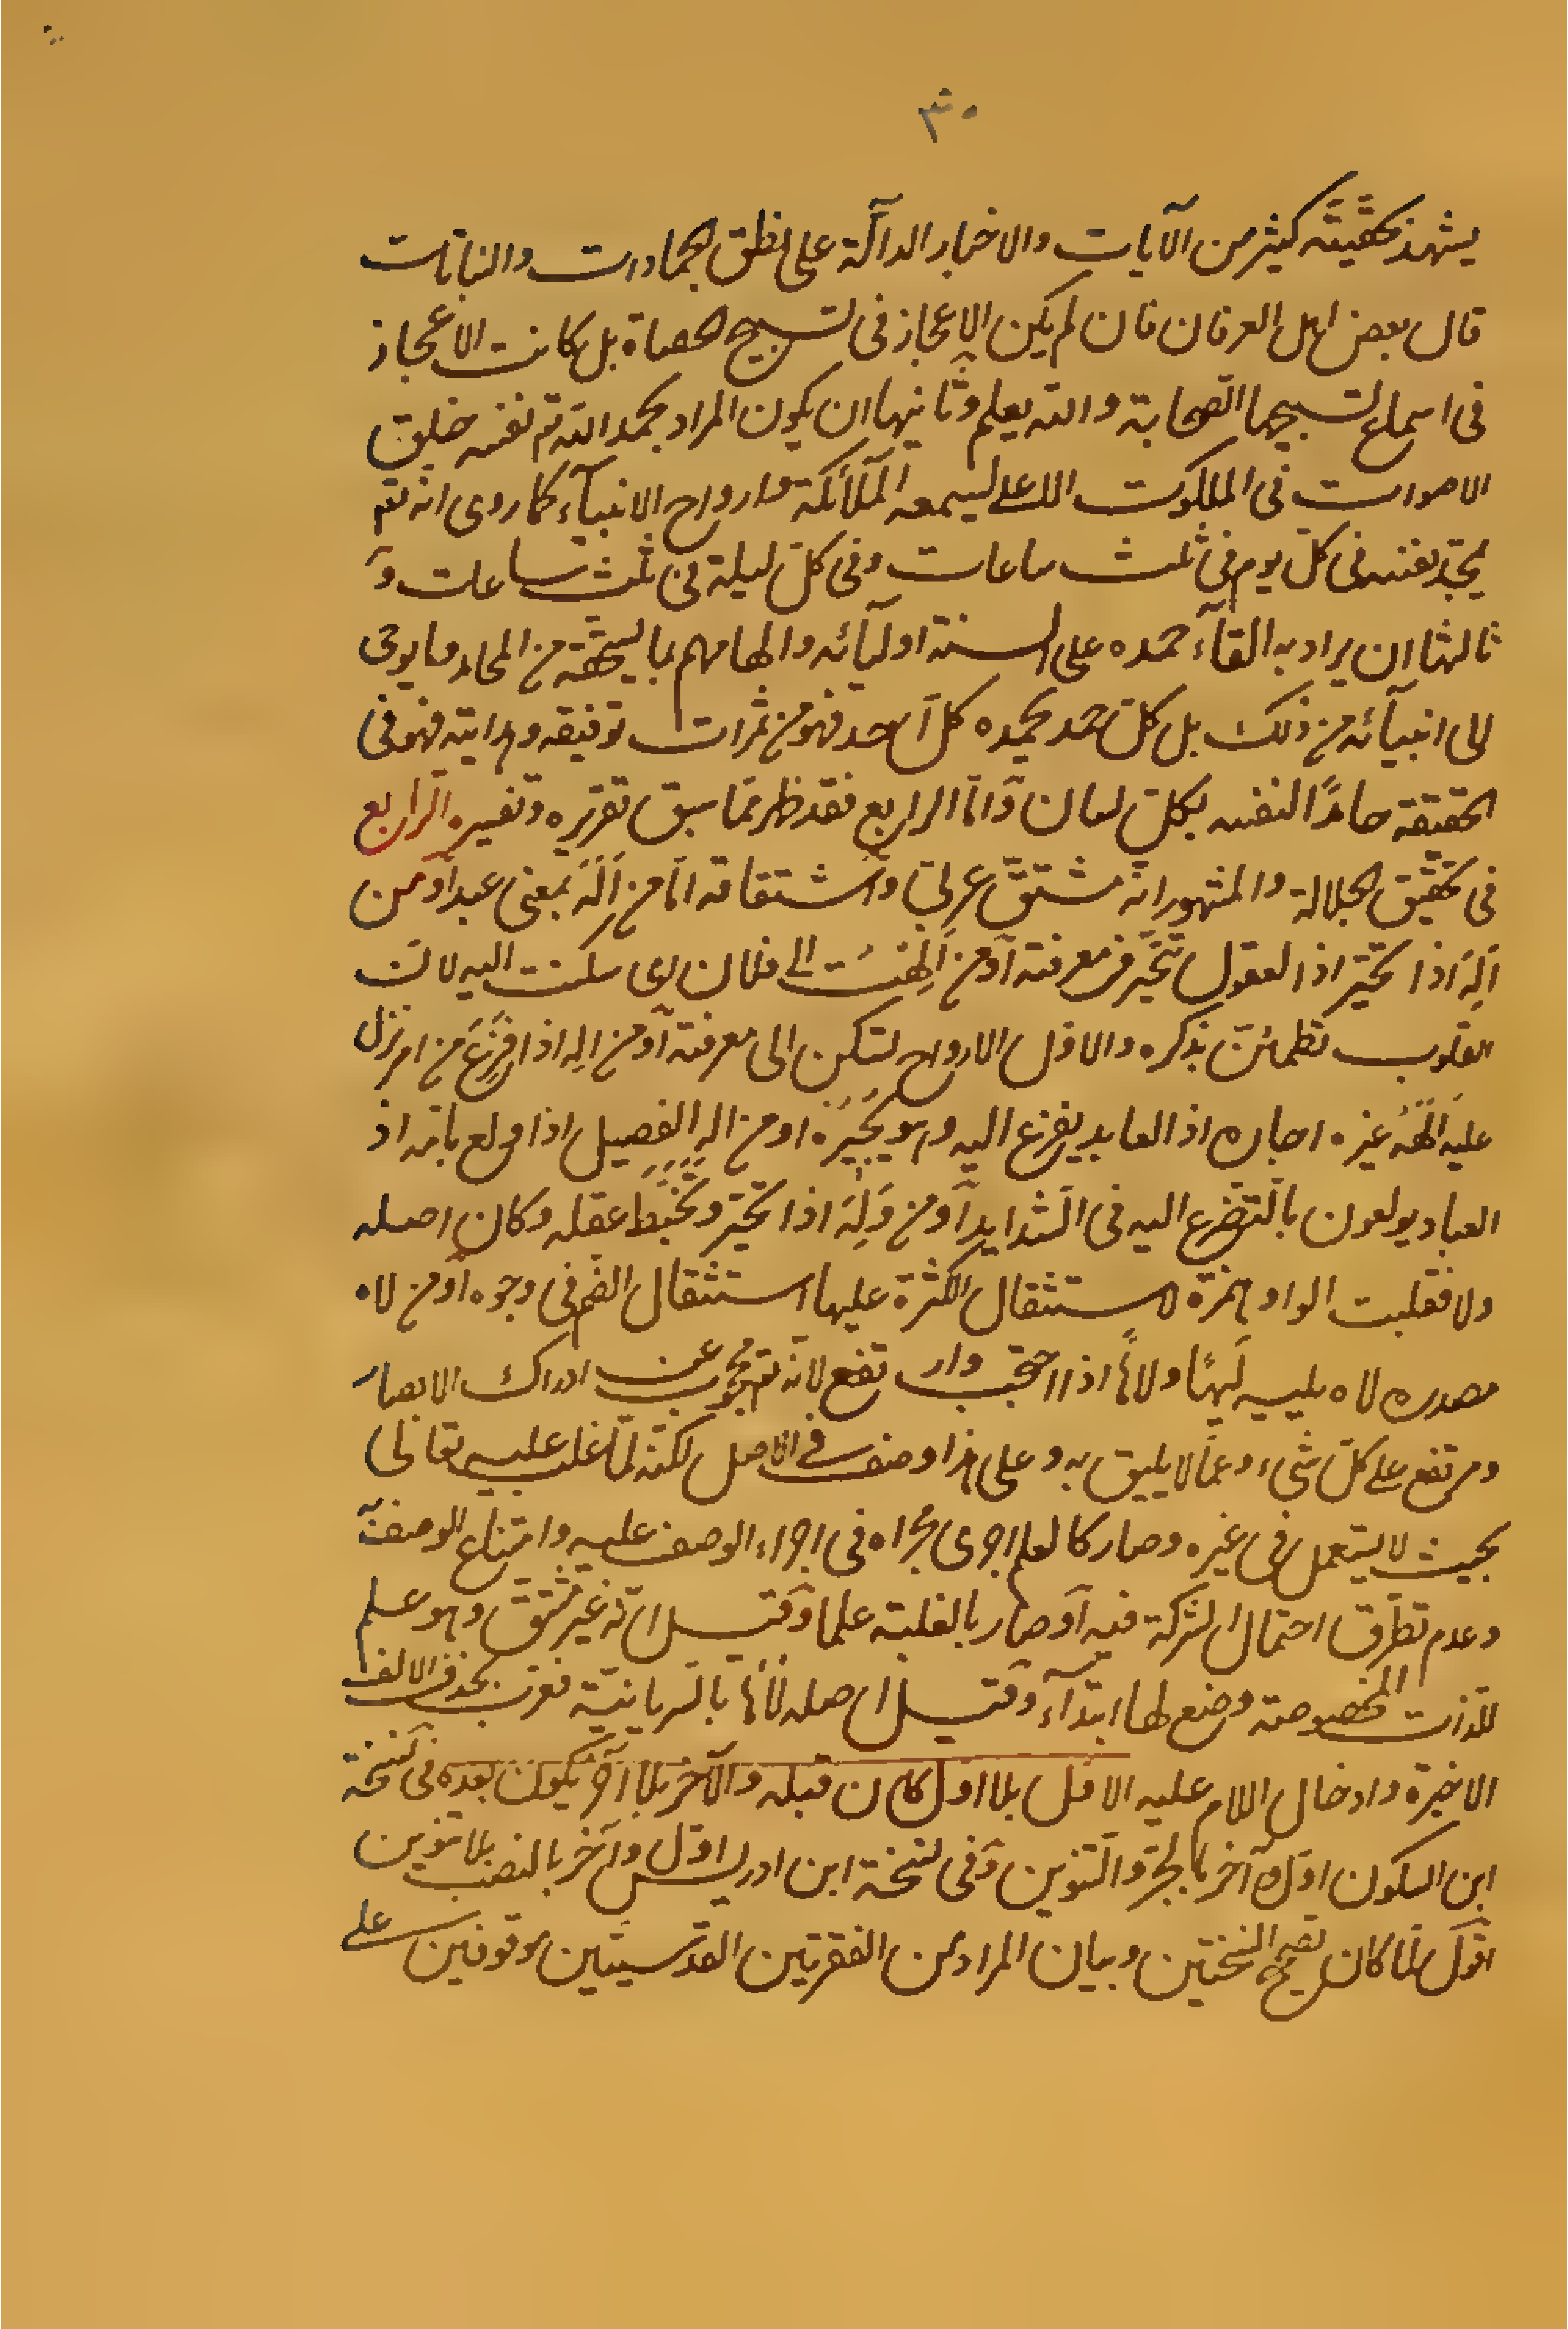 ٣٠
يشهد بحقيقته كثير من الآيات والاخبار الدالّة على نطق الجمادات والنباتات
قال بعض اهل العرفان فان لم يكن الاعجاز فى تسبيح الحصاة بل كانت الاعجاز
فى اسماع تسبيحها الصحابة والله يعلم وثانيها ان يكون المراد بحمد الله تم نفسه خلق
الاصوات فى الملكوت الاعلى ليسمعه الملآئكة وارواح الانبيآء كما روى انه تعم
يمجّد نفسه فى كلّ يوم فى ثلث ساعات وفى كلّ ليلة فى ثلث ساعات و
ثالثها ان يراد به القآء حمده على السنة اوليآئه والهامهم بما يستحقّه من المحامد وما يوحى
الى انبيآئه من ذلك بل كلّ حمد يحمده كلّ احد فهو من ثمرات توفيقه وهدايته فهو فى
الحقيقة حامدًا لنفسه بكلّ لسان وامّا الرابع فقد ظهر ممّا سبق تقريره وتفسيره الرّابع
فى تحقيق الجلالة والمشهور انّه مشتقّ عربى واشتقاقه امّا من اَلَهَ بمعنى عبد او من
اَلِهَ اذا تحيّر اذ العقول تتحيّر فى معرفته او من اَلِهْتُ الى فلان اى سكنت اليه لانّ
القلوب تطمئنّ بذكره والاوّل الارواح تسكن الى معرفته او من اله اذا فزع من امر نزل
عليه وآلهه غيره اجاره اذ العابد يفزع اليه وهو يجيره او من اله الفصيل اذا ولع بامّه اذ
العباد يولعون بالتضرع اليه فى الشدايد او من وَلِهَ اذا تحيّر وتخبّط عقله وكان اصله
ولاه فقلبت الواو همزة لاستثقال الكثرة عليها استثقال الضم فى وجوه او من لاه
مصدره لاه يليه ليهًا ولاهًا اذا احتجب وارتفع لانّه تم محجوب عن ادراك الابصار
ومرتفع على كلّ شىء وعمّا لا يليق به وعلى هذا وصف فى الاصل لكنّه لمّا غلب عليه تعالى
بحيث لا يستعمل فى غيره وصار كالعلم اجرى مجراه فى اجراء الوصف عليه وامتناع الوصف
وعدم تطرّق احتمال الشركة فيه او صار بالغلبة علما وقيل انّه غير مشتقّ وهو علم
للذات المخصوصة وضع لها ابتدآء وقيل اصله لاها بالسّريانيّة فعرّب بحذف الالف
الاخيرة وادخال اللام عليه الاوّل بلا اوّل كان قبله والآخر بلا آخر يكون بعده فى نسخة
ابن السكون اوّل وآخر بالجرّ والتنوين وفى نسخة ابن ادريس اوّل وآخر بالنصب بلا تنوين
اقول لمّا كان تصحيح النسختين وبيان المراد من الفقرتين القدّسيتين موقوفين على